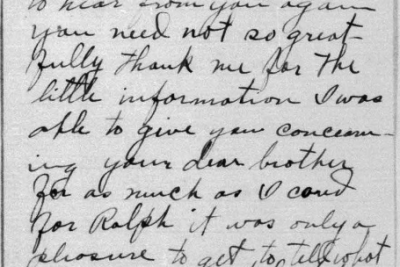 to hear from you again
you need not so great-
fully thank me for the
little information I was
able to give you concern-
ing your dear brother
for as much as I card
for Ralph it was only a
pleasure to get to tell what